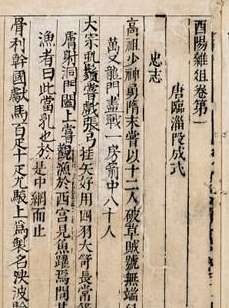 酉陽雜俎卷第一
唐臨淄段成式
忠志
高祖少神勇隋末嘗以十二人破草賊號無端
萬又龍門盡一房箭中八十人
大宗虬鬚嘗戲張弓挂矢好用四羽大笴長常箭
膚射洞門闔上嘗觀漁於西宮見魚躍焉問其
漁者曰此當乳也於是中網而止
骨利幹國獻馬百疋十疋尤駿上爲製名決波